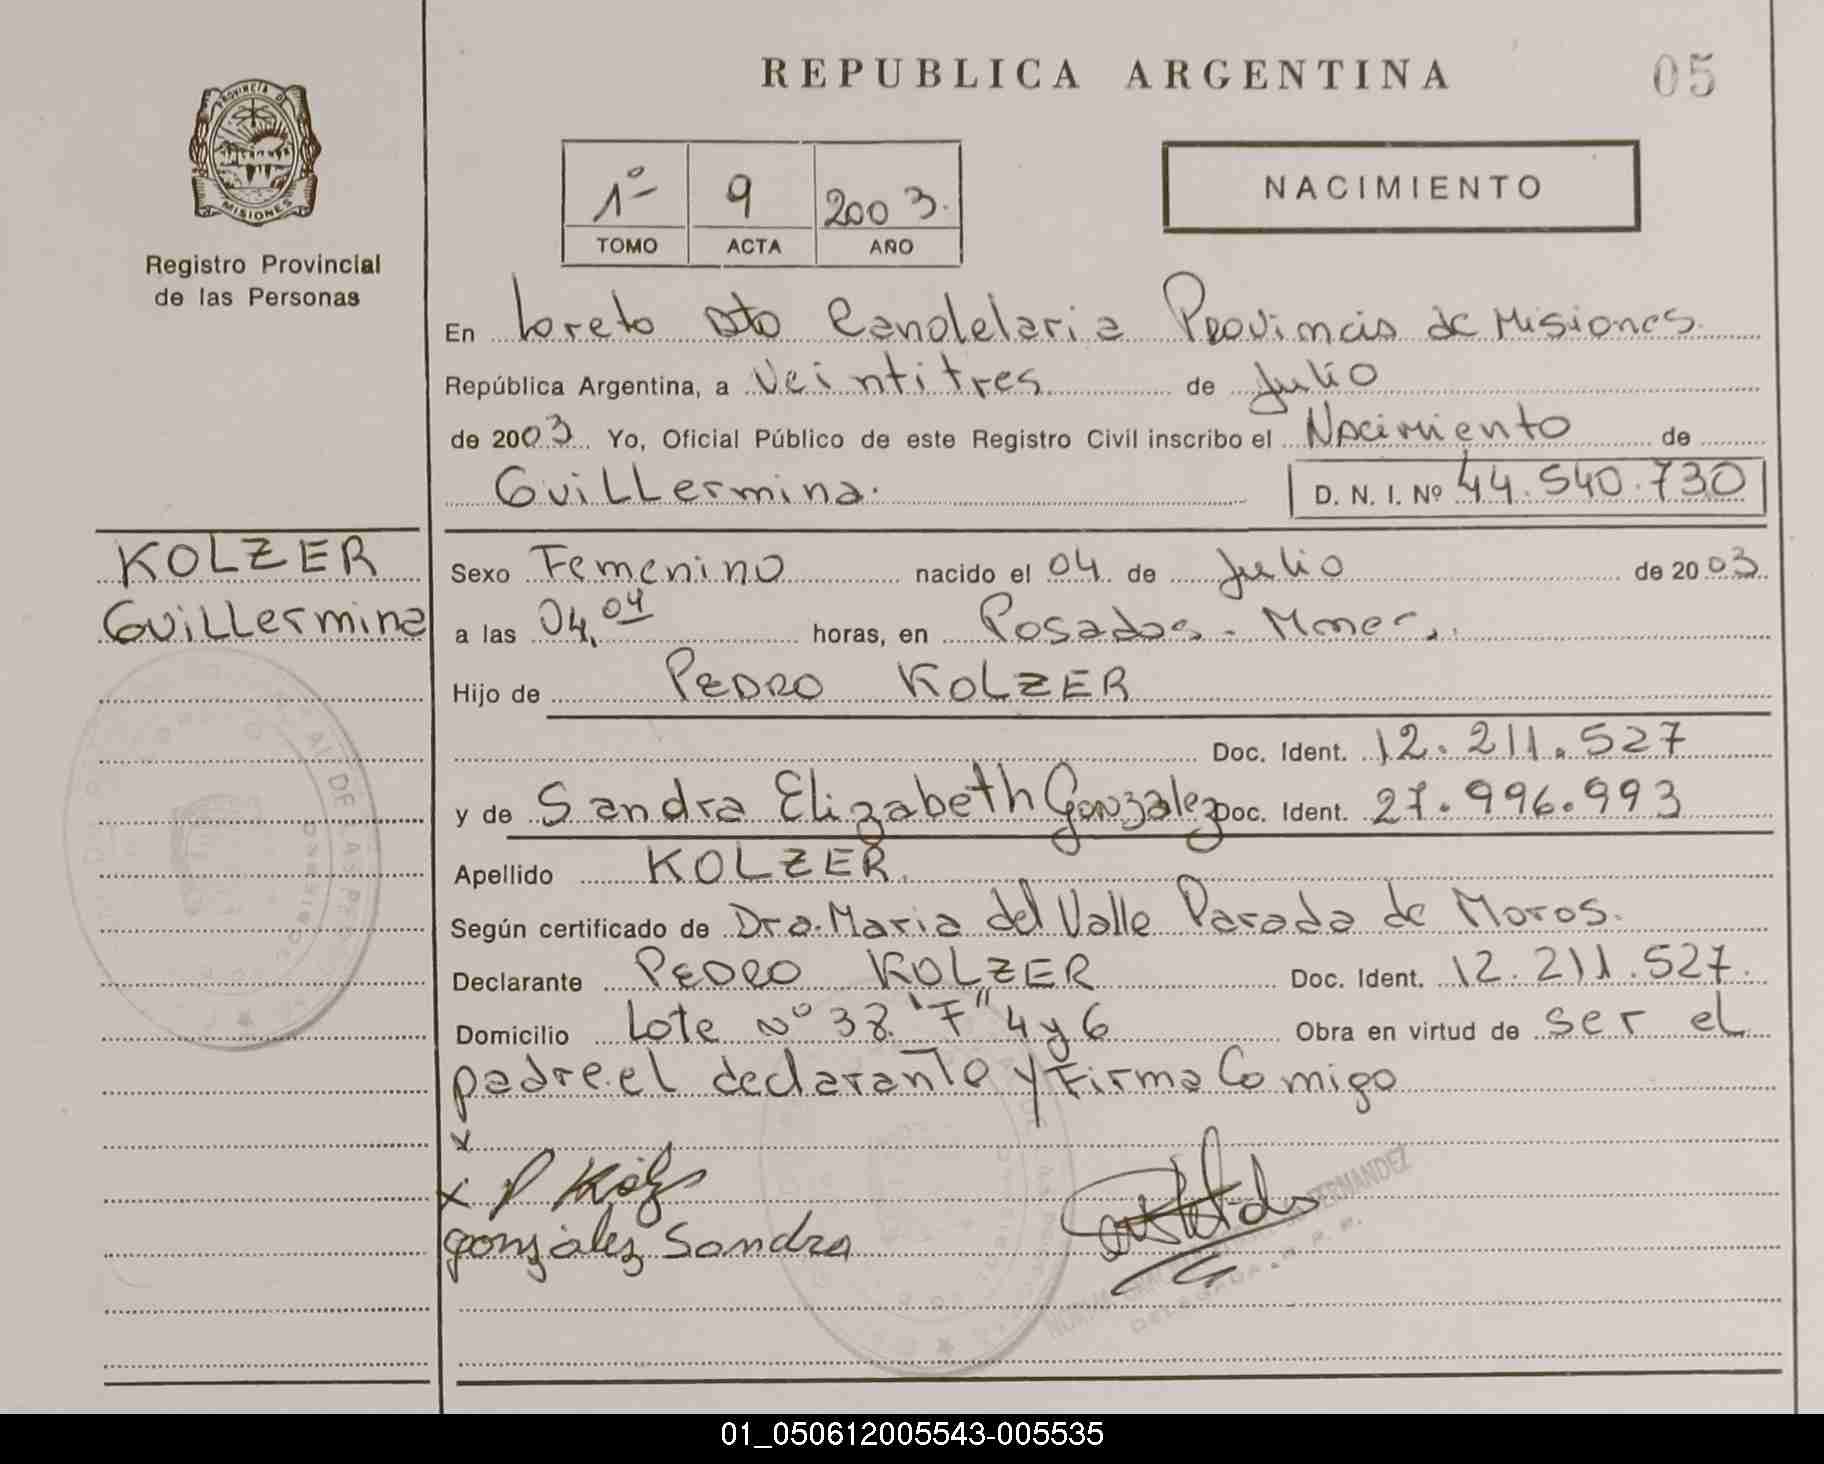 REPUBLICA ARGENTINA
05
PROVINCIA DE
MISIONES
Registro Provincial
de las Personas
1º 9 2003.
TOMO ACTA AÑO
NACIMIENTO
En Loreto Dto Candelaria Provincia de Misiones.
República Argentina, a Veintitres de Julio
de 2003 Yo, Oficial Público de este Registro Civil inscribo el Nacimiento de
Guillermina. D. N. I. Nº 44.540.730
KOLZER
Guillermina
Sexo Femenino nacido el 04 de Julio de 2003
a las 04,04 horas, en Posadas - Mnes.
Hijo de PEDRO KOLZER
Doc. Ident. 12.211.527
y de Sandra Elizabeth Gonzalez Doc. Ident. 27.996.993
Apellido KOLZER.
Según certificado de Dra. Maria del Valle Parada de Moros.
Declarante PEDRO KOLZER Doc. Ident. 12.211.527.
Domicilio Lote Nº 38 "F" 4 y 6 Obra en virtud de ser el
padre el declarante y Firma Comigo
x
x P Kolz
gonzález Sandra
FERNANDEZ
DELEGADA R. P. P.
01_050612005543-005535